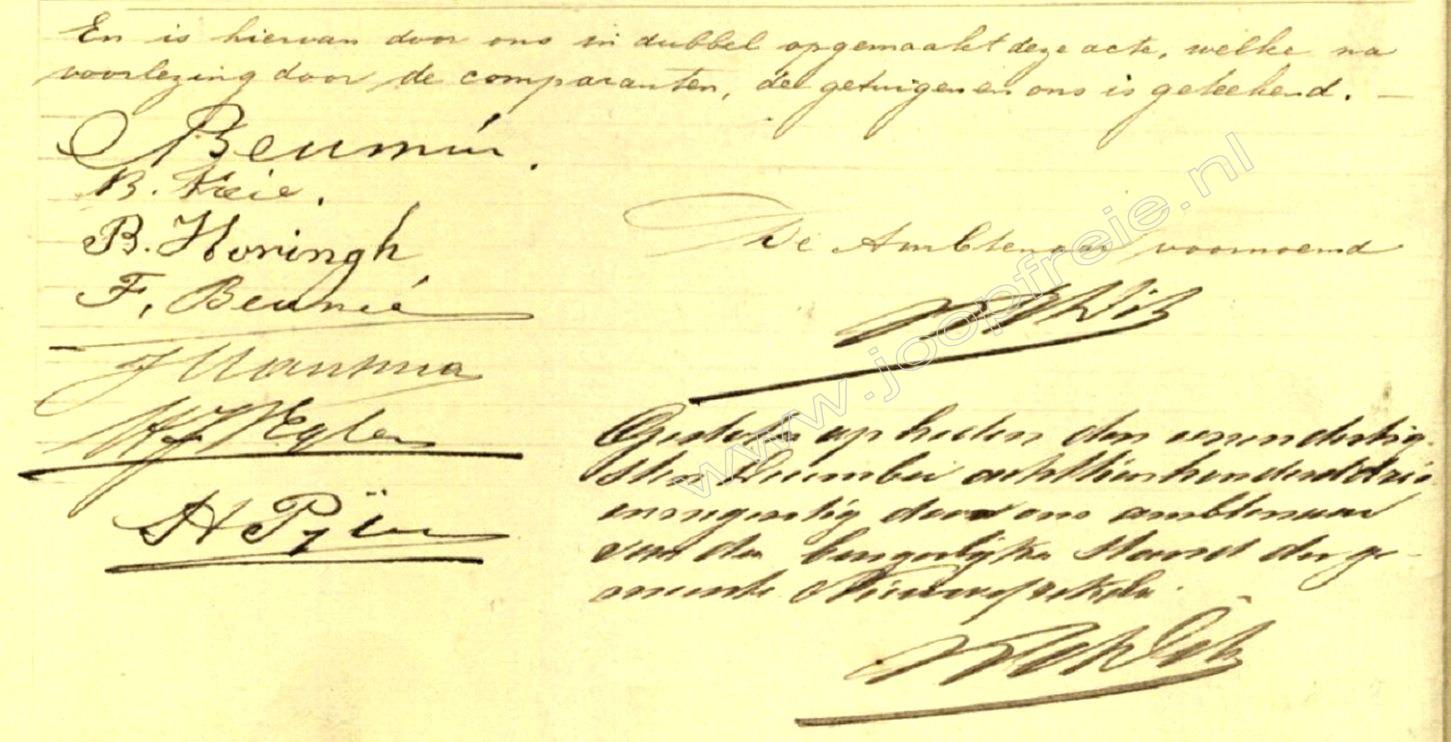 En is hiervan door ons in dubbel opgemaakt deze acte, welke na
voorlezing door de comparanten, de getuigen en ons is geteekend. —
Beumer.
B. Freie.
B. Honingh
F. Beunié
De Ambtenaar voornoemd
J Mantma
Gesloten op heden den eenendertig-
sten December achttienhonderd drie
en negentig door ons ambtenaar
van den burgerlijken Stand der ge-
meente
www.joopfreie.nl